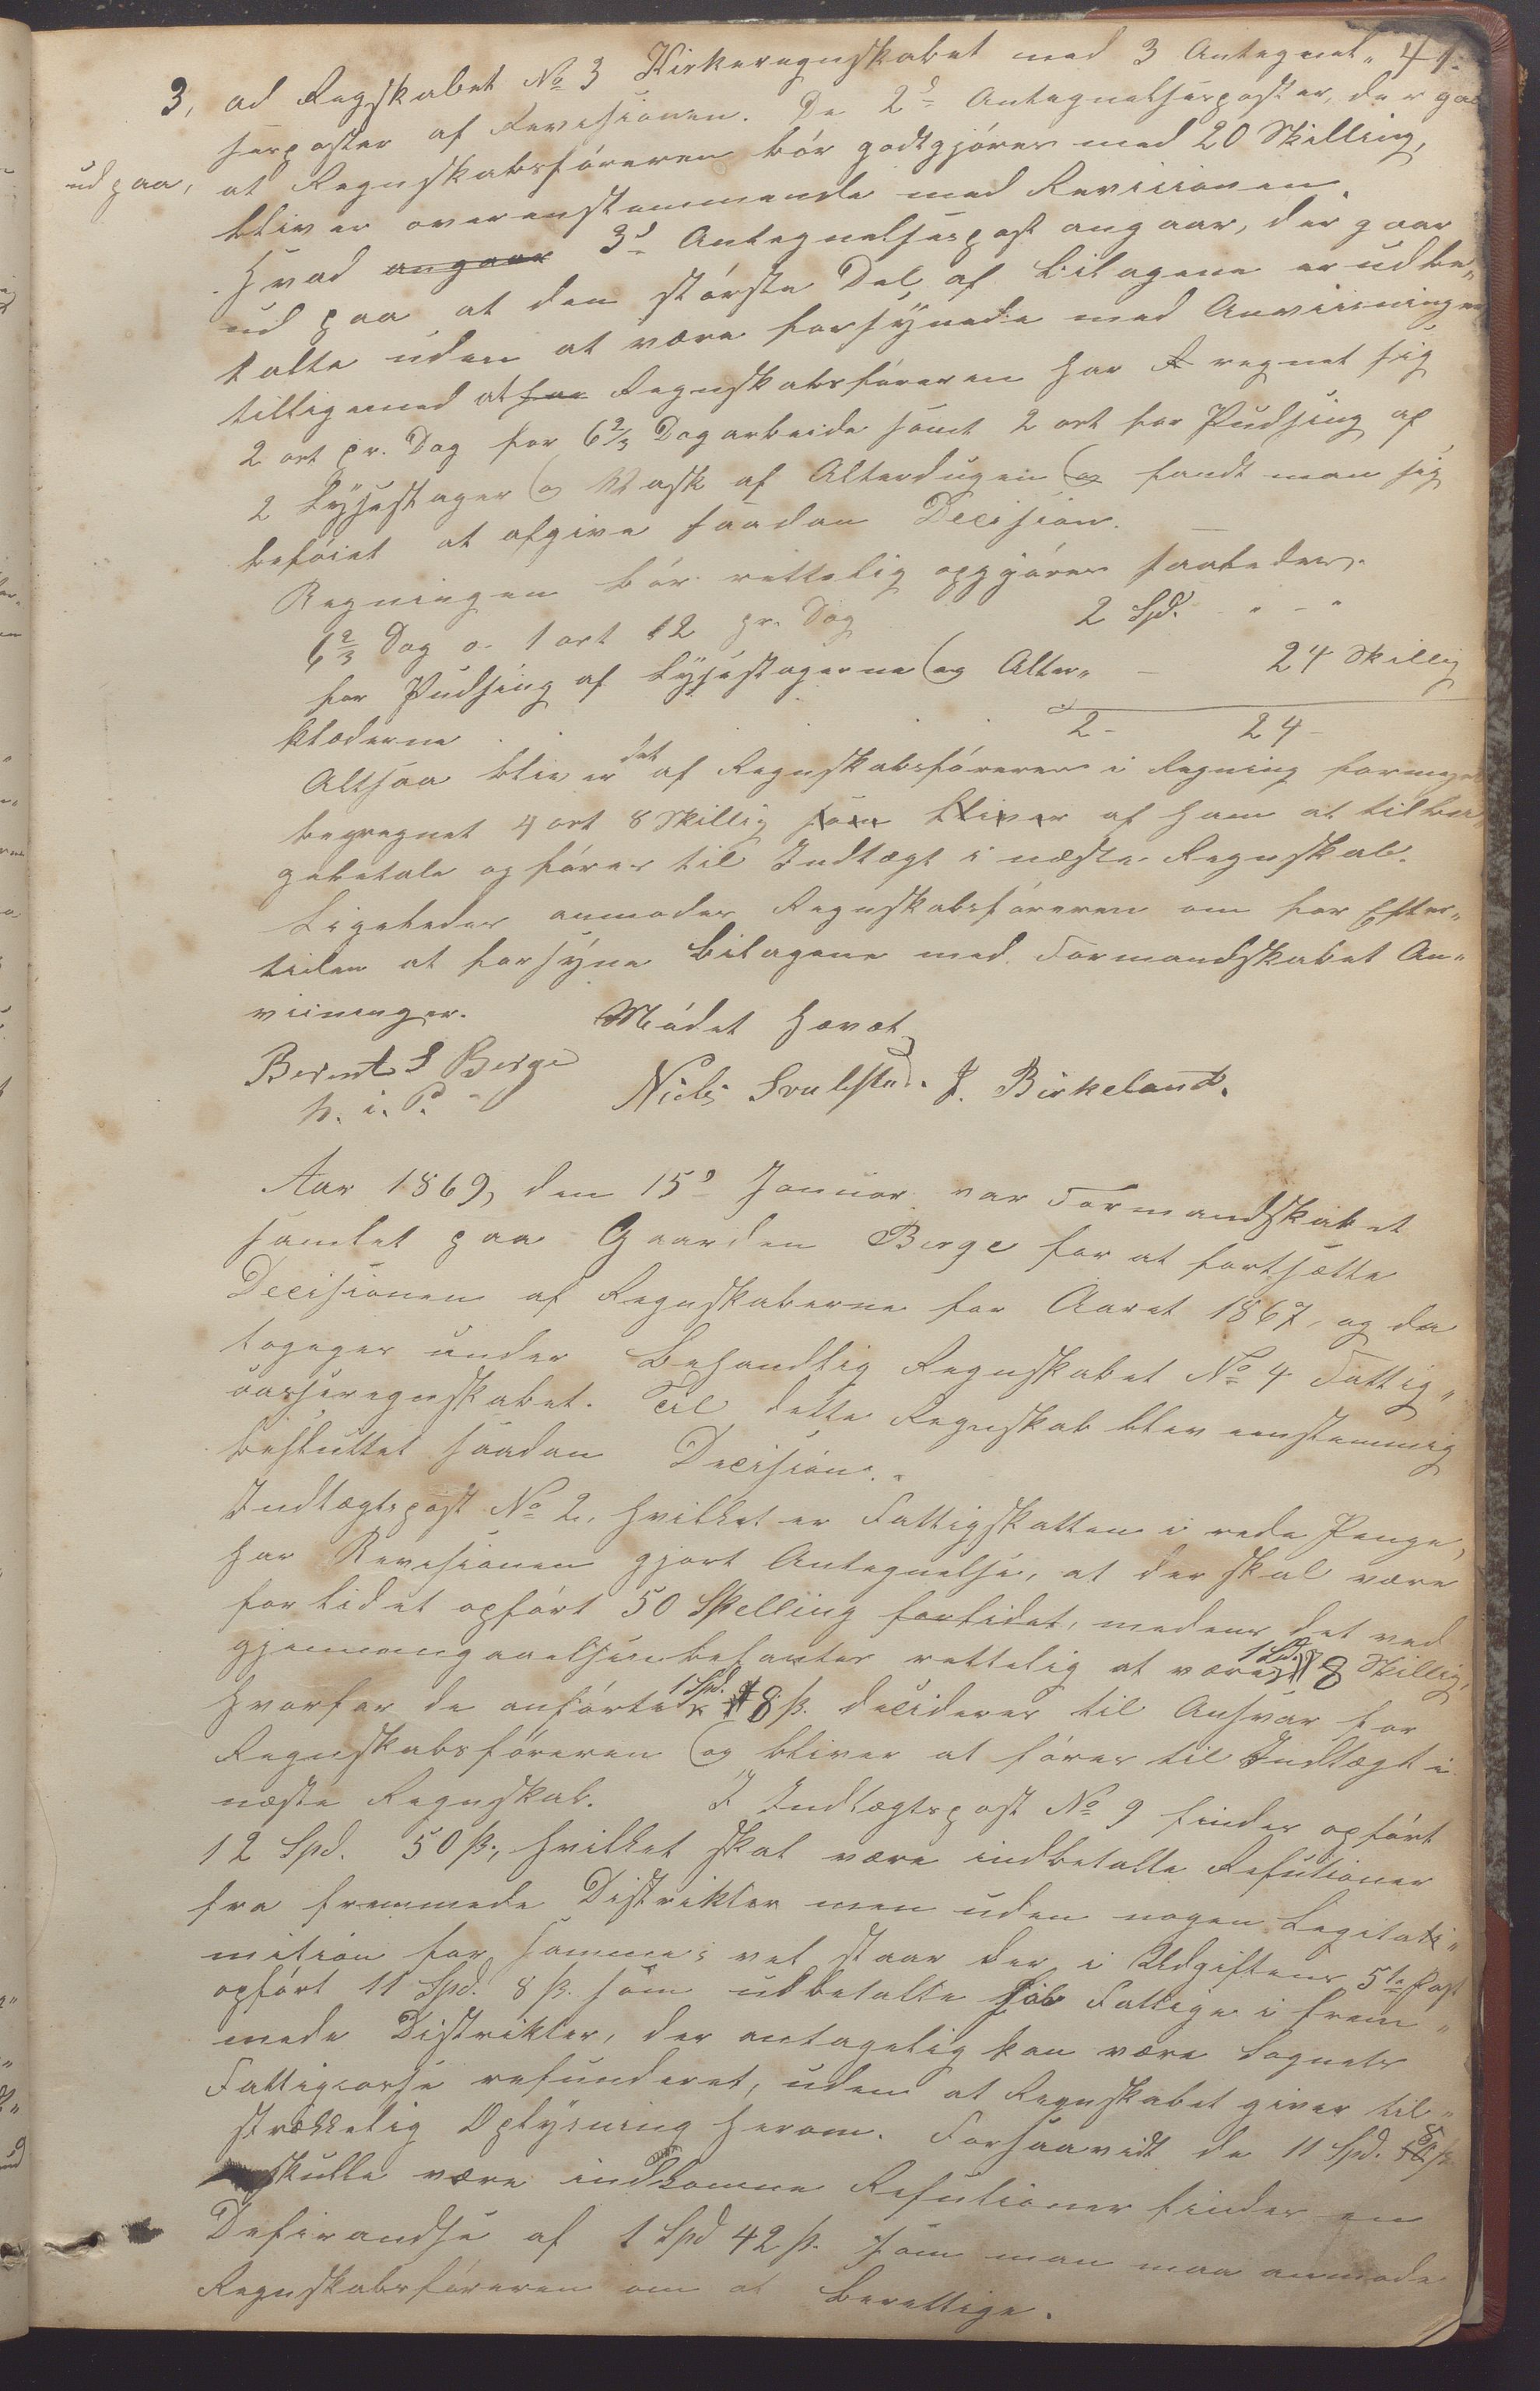 41.
3, ad Regskabet No 3 Kirkeregnskabet med 3 Antegnel„
sesposter af Revisionen. De 2d Antegnelsesposter, der gaar
ud paa, at Regnskabsføreren bør godtgjøres med 20 Skilling,
bliver overenstemmende med Revisionen.
Hvad angaar 3d Antegnelsespost angaar, der gaar
ud paa at den største Del af Bilagene er udbe„
talte uden at være forsÿnede med Anviisninger
tilligemed at har Regnskabsføreren har R regnet sig
2 ort pr. Dag for 6 2/3 Dagarbeide samt 2 ort for Pudsing af
2 Lÿsestager og Vask af Alterdugen og fandt man sig
beføiet at afgive saadan Decision.
Regningen bør rettelig opgjøres saaledes.
6 2/3 Dag a 1 ort 12 pr. Dag 2 Spd. „ - „
for Pudsing af Lÿsestagerne og Alter„ — 24 Skillig
klæderne 2 - 24 -
Altsaa bliver det af Regnskabsføreren i Regning formeget
begregnet 4 ort 8 Skillig som bliver af ham at tilba„
gebetale og føres til Indtægt i næste Regnskab.
Ligeledes anmodes Regnskabsføreren om for Efter„
tiden at forsÿne Bilagene med Formandskabet An„
viininger.
Mødet hævet
Bernt S Berge Niels Svalestad. J. Birkeland.
h. i. P.
Aar 1869, den 15d Januar var Formandskabet
samlet paa Gaarden Berge for at fortsætte
Decisionen af Regnskaberne for Aaret 1867, og da
toges under Behandlig Regnskabet No 4 Fattig„
casseregnskabet. Til dette Regnskab blev eenstemmig
besluttet saadan Decision.
Indtægtspost No 2, hvilket er Fattigskatten i rede Penge,
har Revisionen gjort Antegnelse, at der skal være
forlidet opført 50 Skelling forlidet, medens det ved
gjennemgaaelsen befantes rettelig at være 1 Spd. 8 Skillig,
hvorfor de anførte 1 Spd. 8 ß. decideres til Ansvar for
Regnskabsføreren og bliver at føres til Indtægt i
næste Regnskab. I Indtægtspost No 9 findes opført
12 Spd. 50 ß, hvilket skal være indbetalte Refutioner
fra fremmede Distrikter men uden nogen Legitati„
mition for samme; vel staar der i Udgiftens 5te Post
opført 11 Spd. 8 ß. som udbetalte til Fattige i frem„
mede Distrikter, der antagelig kan være Sognets
Fattigcasse refunderet, uden at Regnskabet giver til„
strækkelig Oplÿsning herom. Forsaavidt de 11 Spd. 8 ß.
skulle være indkomne Refutioner findes en
Defirandse af 1 Spd 42 ß. som man maa anmode
Regnskabsføreren om at berettige.